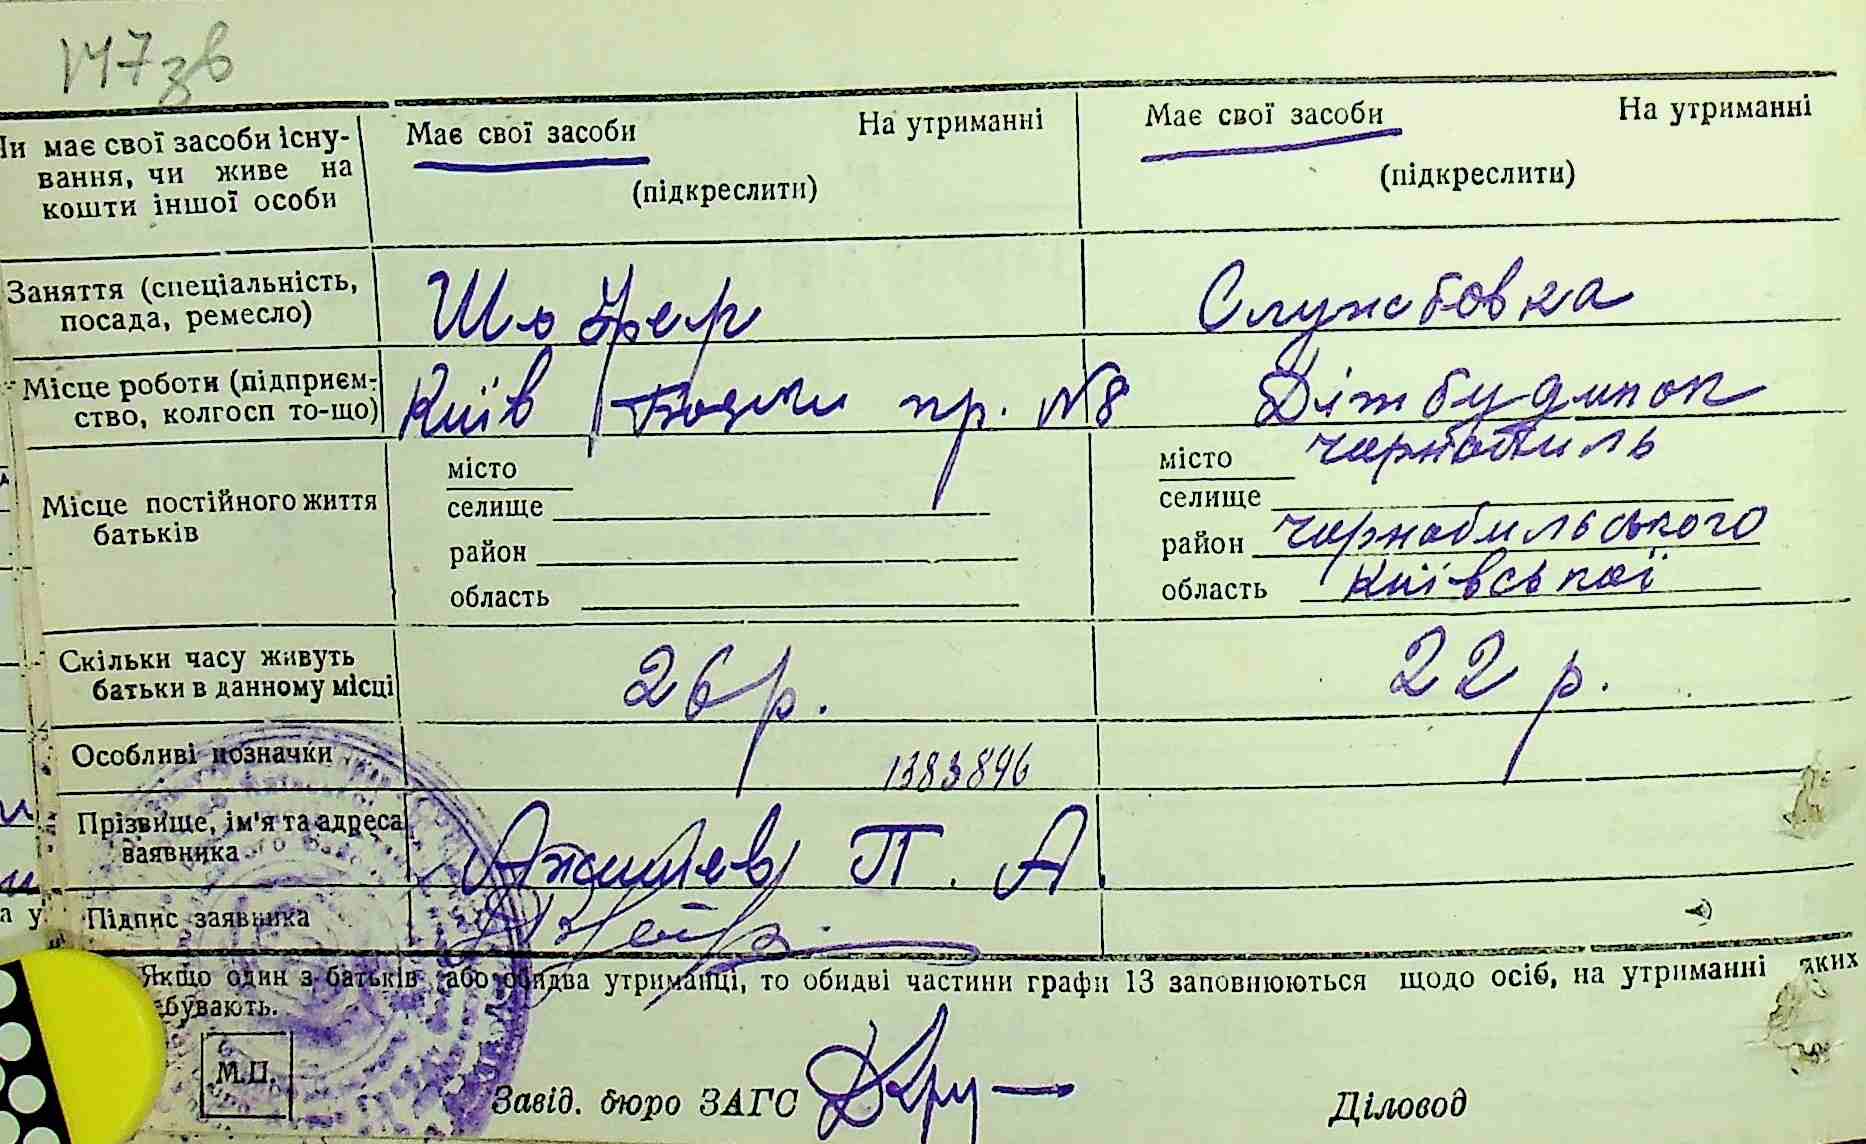 147 зв
Чи має свої засоби існу-
вання, чи живе на
кошти іншої особи
Має свої засоби На утриманні
(підкреслити)
Має свої засоби На утриманні
(підкреслити)
Заняття (спеціальність,
посада, ремесло)
Шофер
Службовка
Місце роботи (підприєм-
ство, колгосп то-що)
Київ пр. №8
Дітбудинок
Місце постійного життя
батьків
місто
селище
район
область
місто Чорнобиль
селище
район Чорнобильського
область Київської
Скільки часу живуть
батьки в данному місці
26 р.
22 р.
Особливі позначки
1383896
Прізвище, ім'я та адреса
заявника
П. А.
Підпис заявника
Якщо один з батьків або обидва утриманці, то обидві частини графи 13 заповнюються щодо осіб, на утриманні яких
бувають.
М.П.
Завід. бюро ЗАГС
Діловод